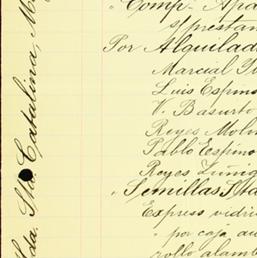 Comp- Apa
s/prestan
Por Alquilad
Marcial
Luis Espino
V. Basurto
Reyes Molin
Pablo Espino
Reyes Zúñig
" Semillas Sta
Express vidri
" por caja au
rollo alamb
Hda. Sta. Catalina, M